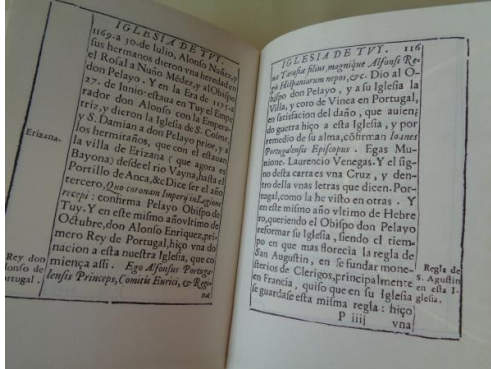 IGLESIA DE TVY.
1169. a 30. de Iulio, Alonso Nuñez, y
sus hermanos dieron vna heredad en
el Rosal a Nuño Médez, y al Obispo
don Pelayo. Y en la Era de 1171. a
27. de Iunio. estaua en Tuy el Empe-
rador don Alonso con la Empera-
triz, y dieron la Iglesia de S. Cosme,
y S. Damian a don Pelayo prior, y a
los hermitaños, que con el estauan
Erizana.
la villa de Erizana (que agora es
Bayona) desde el rio Vayna, hasta el
Portillo de Anca, &c Dice ser el año
tercero, Quo coronam Imperij in Legione
recepi: confirma Pelayo Obispo de
Tuy. Y en este mismo año vltimo de
Octubre, don Alonso Enriquez, pri-
Rey don
lonso de
ortugal.
mero Rey de Portugal, hiço vna do
nacion a esta nuestra Iglesia, que co
miença assi. Ego Alfonsus Portuga-
lensis Princeps, Comitis Eurici, & Regi-
næ
IGLESIA DE TVY. 116
næ Tarasiæ filius, magnique Alfonsi Re-
gis Hispaniarum nepos, &c. Dio al O
bispo don Pelayo, y a su Iglesia la
Villa, y coro de Vinea en Portugal,
en satisfacion del daño, que auien
do guerra hiço a esta Iglesia, y por
remedio de su alma, cõfirman Ioanes
Portugalensis Episcopus. Egas Mu-
nione. Laurencio Venegas. Y el sig
no desta carta es vna Cruz, y den-
tro della vnas letras que dicen. Por-
tugal, como la he visto en otras. Y
en este mismo año vltimo de Hebre
ro, queriendo el Obispo don Pelayo
reformar su Iglesia, siendo el tiem-
po en que mas florecia la regla de
San Augustin, en se fundar mone-
sterios de Clerigos, principalmente
en Francia, quiso que en su Iglesia
se guardase esta misma regla: hiço
Regla de
S. Agustin
en esta I-
glesia.
P iiij vna